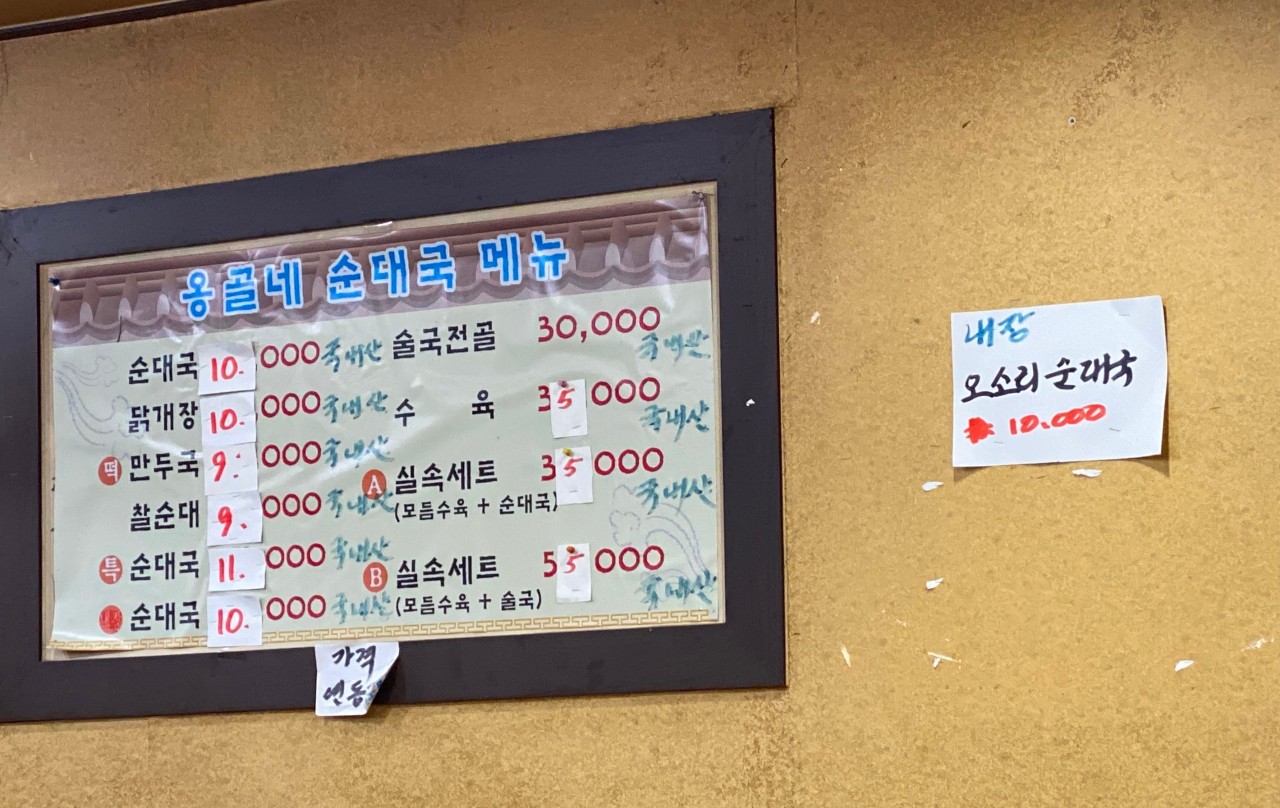 옹골네 순대국 메뉴
순대국 10.000 국내산
닭개장 10.000 국내산
떡 만두국 9.000 국내산
찰순대 9.000 국내산
특 순대국 11.000 국내산
순대국 10.000 국내산
술국전골 30,000 국내산
수 육 35 000 국내산
A 실속세트 35 000 국내산
(모듬수육 + 순대국)
B 실속세트 55 000 국내산
(모듬수육 + 술국)
가격
내장
오소리 순대국
10.000